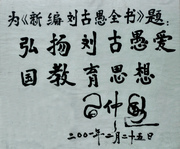 为《新编刘古愚全书》题：
弘扬刘古愚爱
国教育思想
仲
二〇〇一年二月二十五日